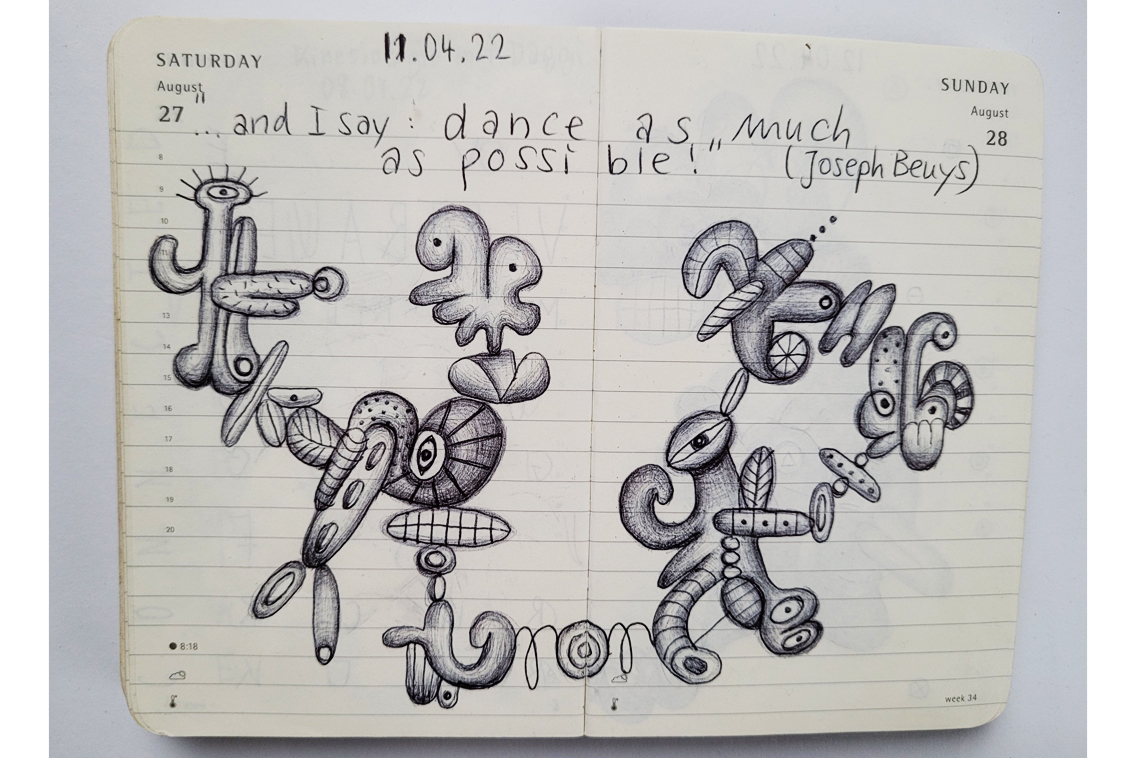 11.04.22
SATURDAY
August
27
SUNDAY
August
28
"... and I say : dance as „ much
as possible! (Joseph Beuys)
8
9
10
13
14
15
16
17
18
19
20
8:18
week 34